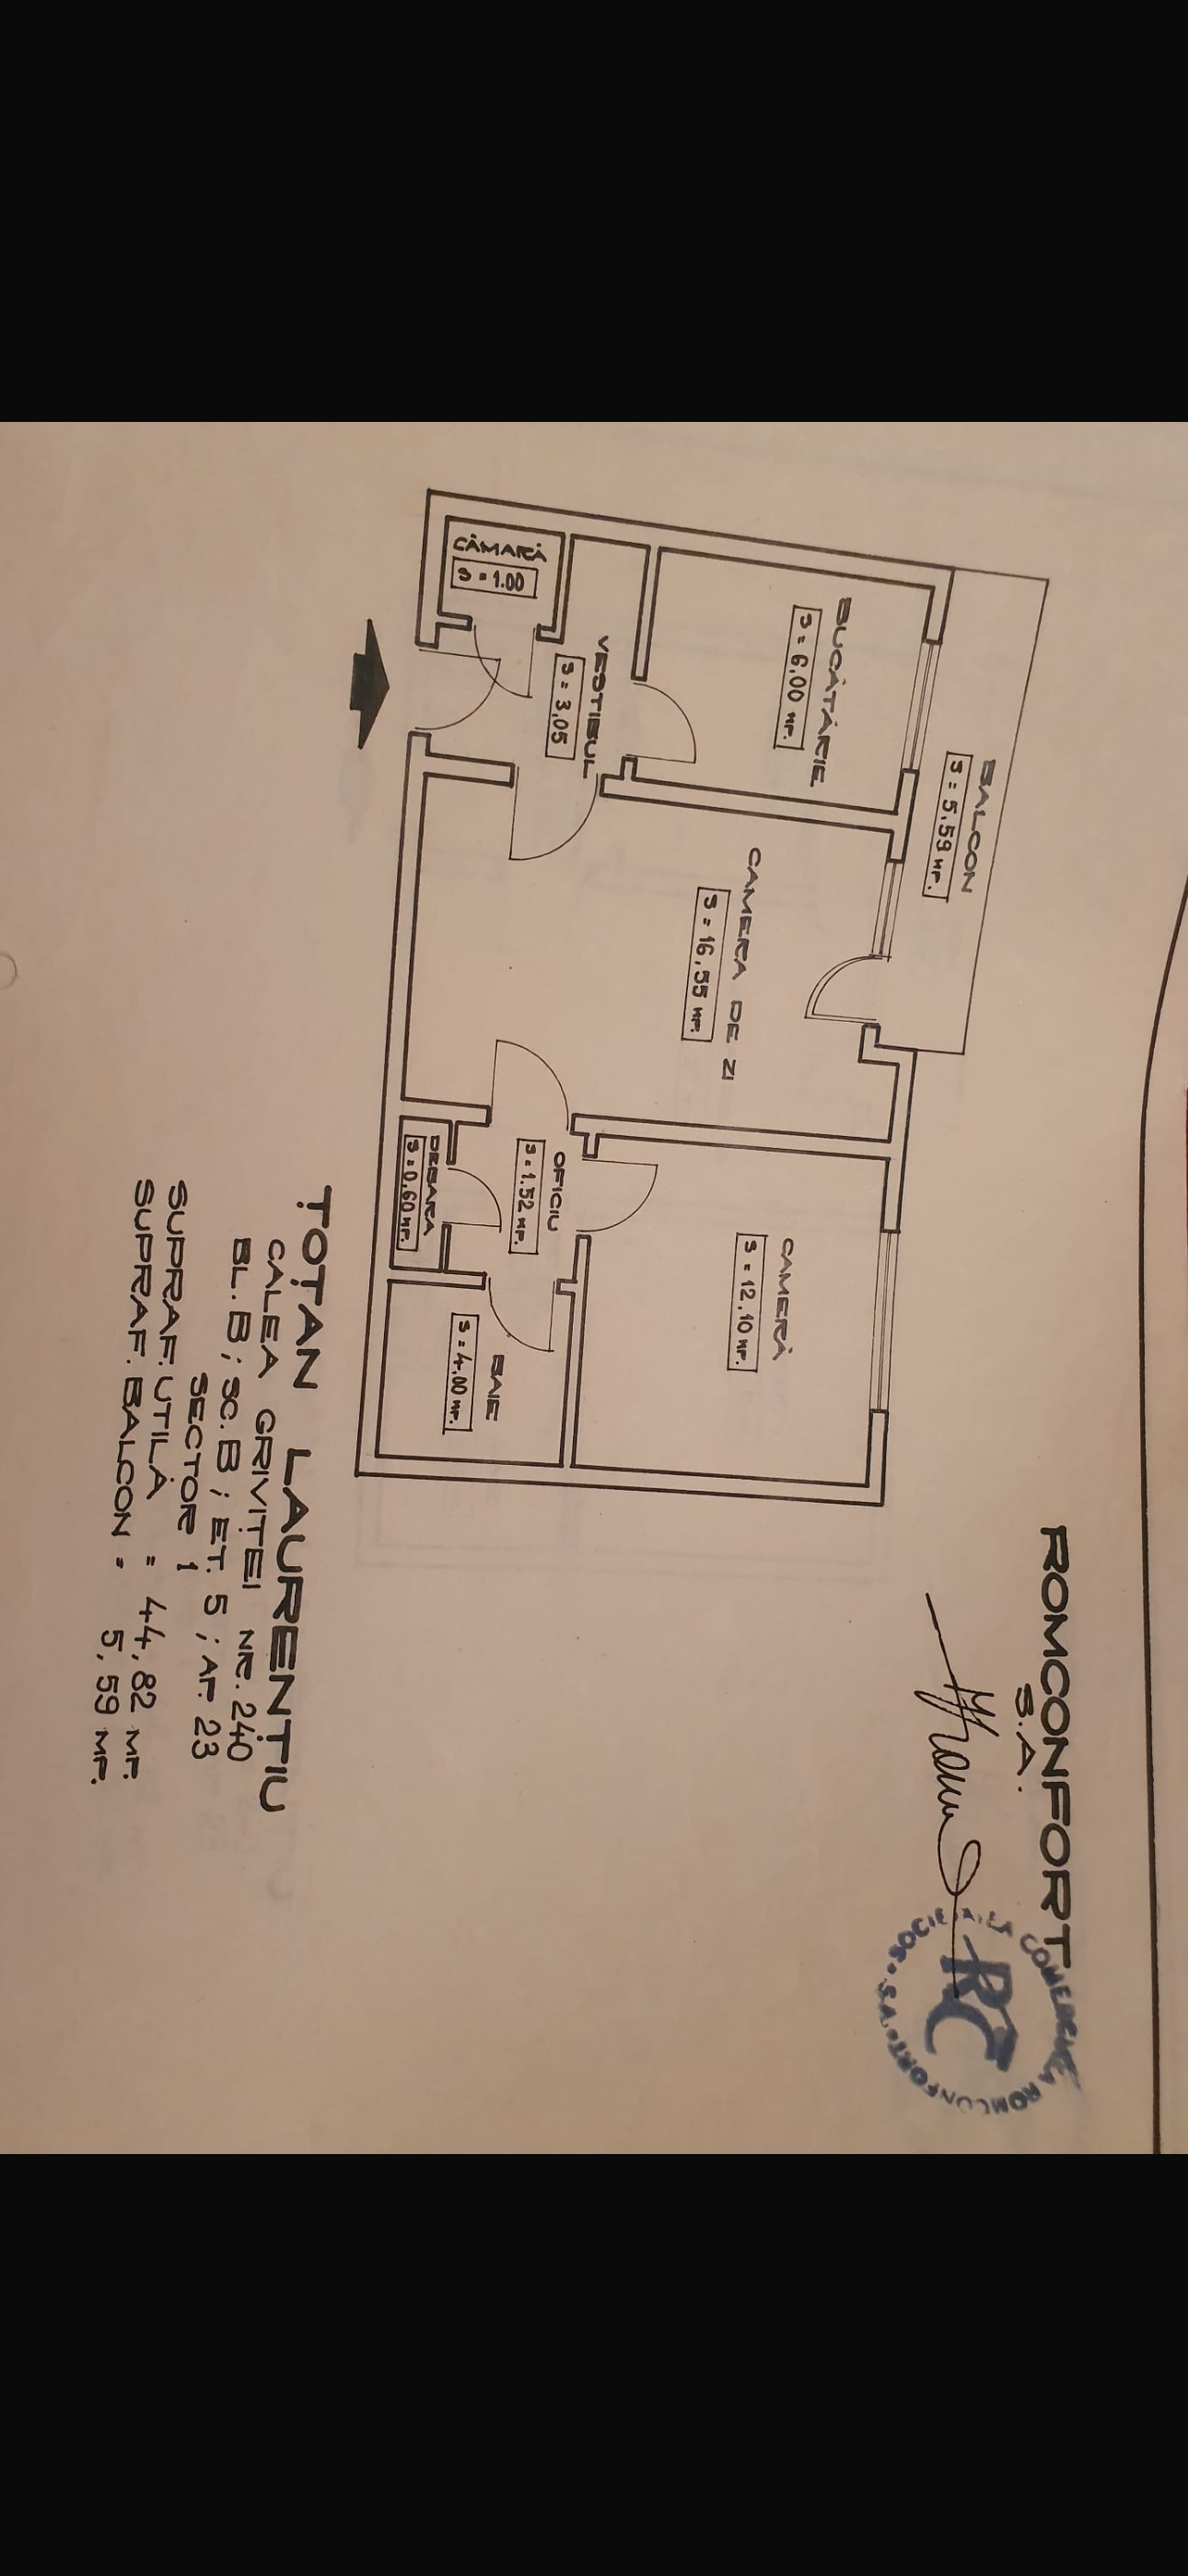 ROMCONFORT
S.A.
SOCIETATEA COMERCIALA ROMCONFORT S.A.
RC
BALCON
S = 5,59 MP.
BUCĂTĂRIE
S = 6,00 MP.
CAMERA DE ZI
S = 16,55 MP.
CAMERĂ
S = 12,10 MP.
VESTIBUL
S = 3,05
CĂMARĂ
S = 1.00
OFICIU
S = 1.52 MP.
DEBARA
S = 0,60 MP.
BAIE
S = 4.00 MP.
ȚOȚAN LAURENȚIU
CALEA GRIVIȚEI NR. 240
BL. B ; SC. B ; ET. 5 ; AP. 23
SECTOR 1
SUPRAF. UTILĂ = 44,82 MP.
SUPRAF. BALCON = 5,59 MP.